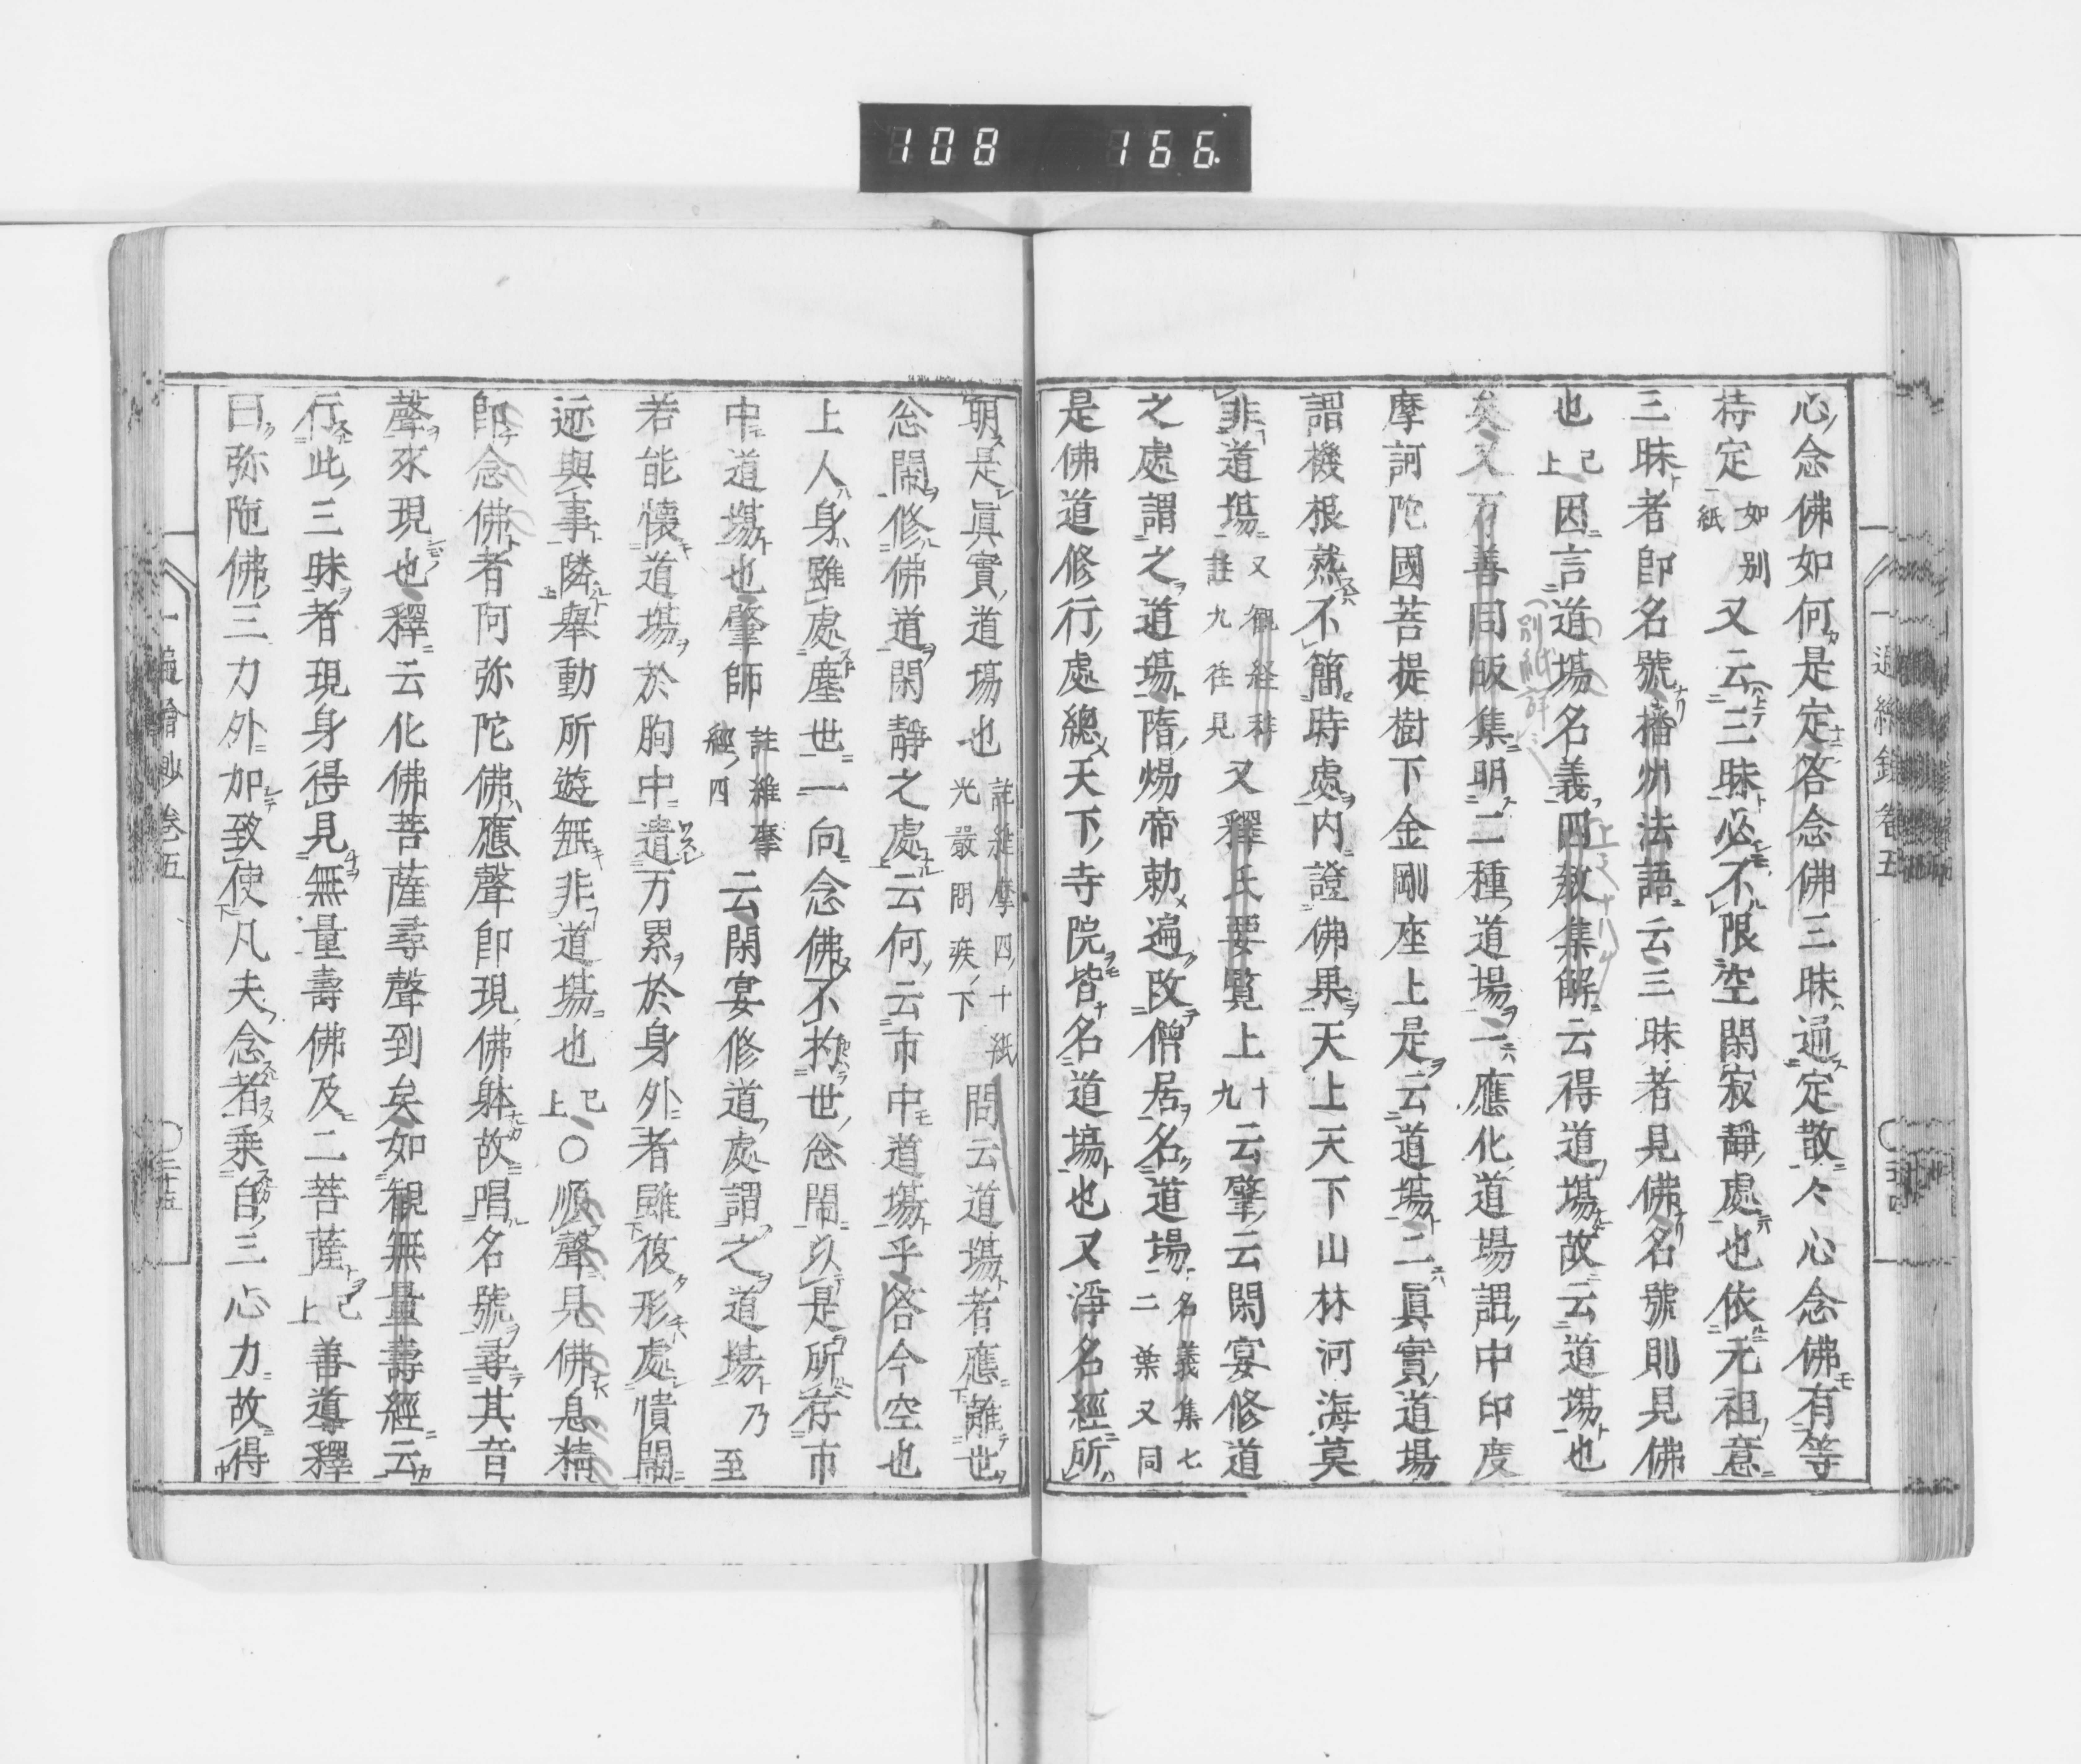 108 166
心念佛如何是定答念佛三昧通定散々心念佛有等
持定如別紙又云三昧必不限空閑寂靜處也依元祖意
三昧者即名號播州法語云三昧者見佛名號則見佛
也已上因言道塲名義四敎集解云得道塲故云道塲也
矣又万善同皈集明二種道場一應化道場謂中印度
摩訶陀國菩提樹下金剛座上是云道塲二眞實道場
謂機根蒸不簡時處内證佛果天上天下山林河海莫
非道塲又觀経註九徃見又釋氏要覧上十九云肇云閑宴修道
之處謂之道塲隋煬帝勅遍改僧居名道塲名義集七二葉又同
是佛道修行處總天下寺院皆名道塲也又淨名經所
明是眞實道塲也註維摩四十紙光嚴問疾下問云道塲者應離世
忩鬧修佛道閑靜之處云何云市中道塲乎答今空也
上人身雖處塵世一向念佛不拘世忩鬧以是所存市
中道塲也肇師註維摩經四云閑宴修道處謂之道塲乃至
若能懷道塲於胸中遺万累於身外者雖復形處憒鬧
迹與事隣舉動所遊無非道塲也已上○順聲見佛息精
即念佛者阿弥陀佛應聲即現佛躰故唱名號尋其音
聲來現也釋云化佛菩薩尋聲到矣如觀無量壽經云
行此三昧者現身得見無量壽佛及二菩薩已上善導釋
曰弥陁佛三力外加致使凡夫念者乗自三心力故得
一遍繪抄卷五